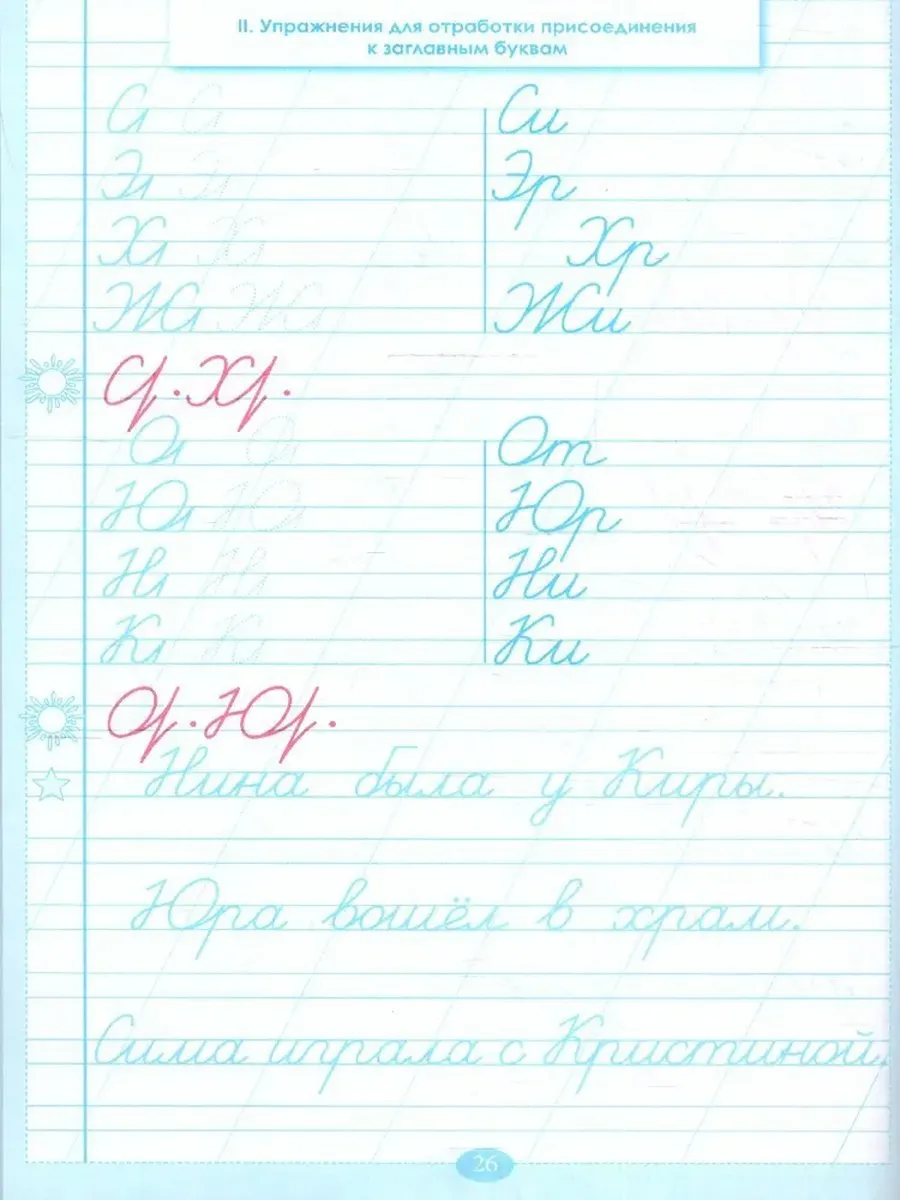 II. Упражнения для отработки присоединения
к заглавным буквам
Си
Эр
Хр
Жи
От
Юр
Ни
Ки
Нина была у Киры.
Юра вошёл в храм.
Сима играла с Кристиной.
26